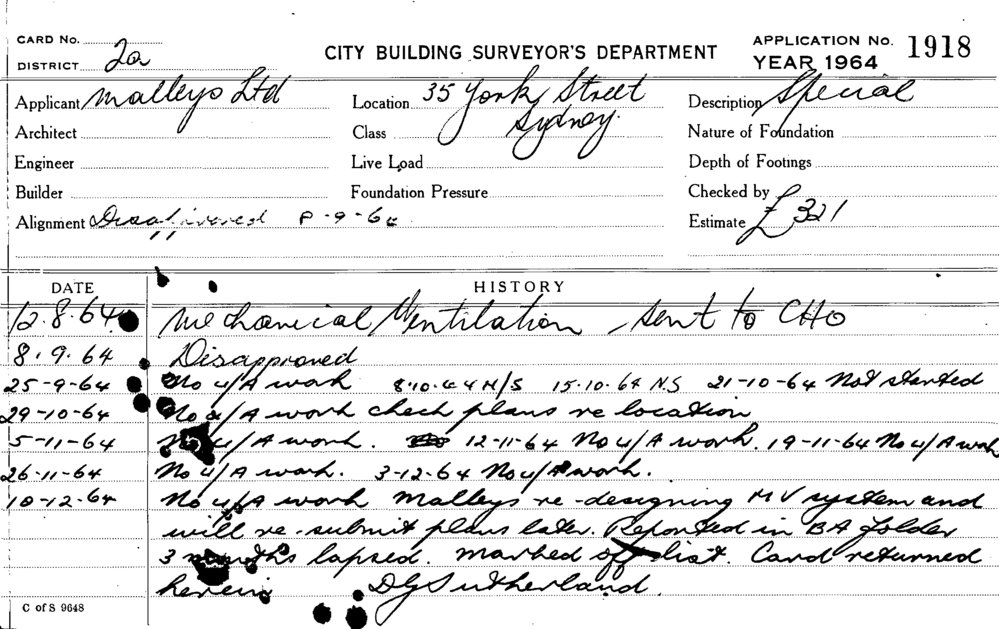 CARD No.
DISTRICT 2a
CITY BUILDING SURVEYOR'S DEPARTMENT
APPLICATION No. 1918
YEAR 1964
Applicant Malleys Ltd
Location 35 York Street
Sydney.
Description Special
Architect
Class
Nature of Foundation
Engineer
Live Load
Depth of Footings
Builder
Foundation Pressure
Checked by
Alignment Disapproved 8-9-64
Estimate £321
DATE HISTORY
12.8.64 Mechanical Ventilation sent to CHO
8.9.64 Disapproved
25-9-64 No u/A work 8.10.64 N/S 15.10.64 N.S 21-10-64 Not started
29-10-64 No u/A work check plans re location
5-11-64 No u/A work. 12-11-64 No u/A work. 19-11-64 No u/A work
26-11-64 No u/A work. 3-12-64 No u/A work.
10-12-64 No u/A work Malleys re-designing MV system and
will re-submit plans later. Reported in BA folder
3 months lapsed. Marked off list. Card returned
herein DG Sutherland.
C of S 9648